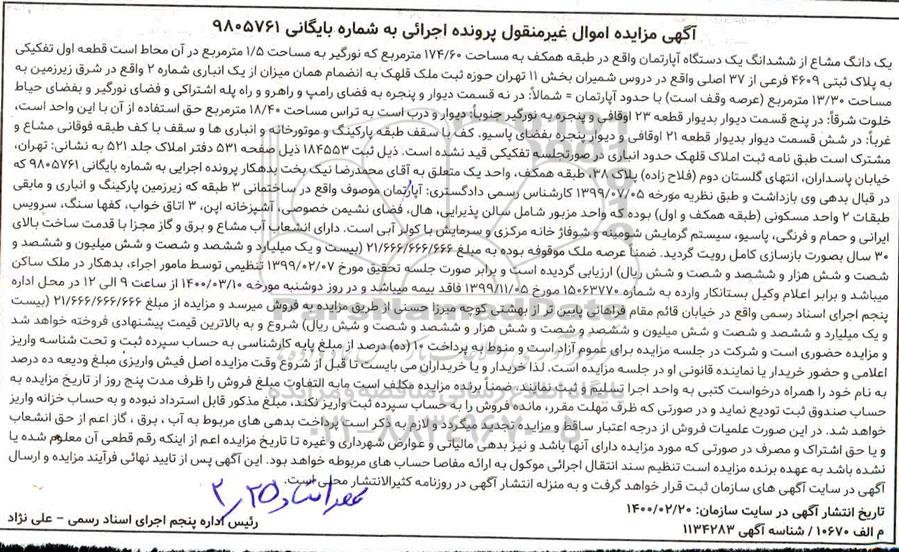 آگهی مزایده اموال غیرمنقول پرونده اجرائی به شماره بایگانی ۹۸۰۵۷۶۱
یک دانگ مشاع از ششدانگ یک دستگاه آپارتمان واقع در طبقه همکف به مساحت ۱۷۴/۶۰ مترمربع که نورگیر به مساحت ۱/۵ مترمربع در آن محاط است قطعه اول تفکیکی
به پلاک ثبتی ۴۶۰۹ فرعی از ۳۷ اصلی واقع در دروس شمیران بخش ۱۱ تهران حوزه ثبت ملک قلهک به انضمام همان میزان از یک انباری شماره ۲ واقع در شرق زیرزمین به
مساحت ۱۳/۳۰ مترمربع (عرصه وقف است) با حدود آپارتمان = شمالاً: در نه قسمت دیوار و پنجره به فضای رامپ و راهرو و راه پله اشتراکی و فضای نورگیر و بفضای حیاط
خلوت شرقاً: در پنج قسمت دیوار بدیوار قطعه ۲۳ اوقافی و پنجره به نورگیر جنوباً: دیوار و درب است به تراس مساحت ۱۸/۴۰ مترمربع حق استفاده از آن با این واحد است،
غرباً: در شش قسمت دیوار بدیوار قطعه ۲۱ اوقافی و دیوار پنجره بفضای پاسیو. کف با سقف طبقه پارکینگ و موتورخانه و انباری ها و سقف با کف طبقه فوقانی مشاع و
مشترک است طبق نامه ثبت املاک قلهک حدود انباری در صورتجلسه تفکیکی قید نشده است. ذیل ثبت ۱۸۴۵۵۳ ذیل صفحه ۵۳۱ دفتر املاک جلد ۵۲۱ به نشانی: تهران،
خیابان پاسداران، انتهای گلستان دوم (فلاح زاده) پلاک ۳۸، طبقه همکف، واحد یک متعلق به آقای محمدرضا نیک بخت بدهکار پرونده اجرایی به شماره بایگانی ۹۸۰۵۷۶۱ که
در قبال بدهی وی بازداشت و طبق نظریه مورخه ۱۳۹۹/۰۷/۰۵ کارشناس رسمی دادگستری: آپارتمان موصوف واقع در ساختمانی ۳ طبقه که زیرزمین پارکینگ و انباری و مابقی
طبقات ۲ واحد مسکونی (طبقه همکف و اول) بوده که واحد مزبور شامل سالن پذیرایی، هال، فضای نشیمن خصوصی، آشپزخانه اپن، ۳ اتاق خواب، کفها سنگ، سرویس
ایرانی و حمام و فرنگی، پاسیو، سیستم گرمایش شومینه و شوفاژ خانه مرکزی و سرمایش با کولر آبی است. دارای انشعاب آب مشاع و برق و گاز مجزا با قدمت ساخت بالای
۳۰ سال بصورت بازسازی کامل رویت گردید. ضمناً عرصه ملک موقوفه بوده به مبلغ ۲۱/۶۶۶/۶۶۶/۶۶۶ (بیست و یک میلیارد و ششصد و شصت و شش میلیون و ششصد و
شصت و شش هزار و ششصد و شصت و شش ریال) ارزیابی گردیده است و برابر صورت جلسه تحقیق مورخ ۱۳۹۹/۰۲/۰۷ تنظیمی توسط مامور اجراء، بدهکار در ملک ساکن
میباشد و برابر اعلام وکیل بستانکار وارده به شماره ۱۵۰۶۳۷۷۰ مورخ ۱۳۹۹/۱۱/۰۵ فاقد بیمه میباشد و در روز دوشنبه مورخه ۱۴۰۰/۰۳/۱۰ از ساعت ۹ الی ۱۲ در محل اداره
پنجم اجرای اسناد رسمی واقع در خیابان قائم مقام فراهانی پایین تر از بهشتی کوچه میرزا حسنی از طریق مزایده به فروش میرسد و مزایده از مبلغ ۲۱/۶۶۶/۶۶۶/۶۶۶ (بیست
و یک میلیارد و ششصد و شصت و شش میلیون و ششصد و شصت و شش هزار و ششصد و شصت و شش ریال) شروع و به بالاترین قیمت پیشنهادی فروخته خواهد شد
و مزایده حضوری است و شرکت در جلسه مزایده برای عموم آزاد است و منوط به پرداخت ۱۰ (ده) درصد از مبلغ پایه کارشناسی به حساب سپرده ثبت و تحت شناسه واریز
اعلامی و حضور خریدار یا نماینده قانونی او در جلسه مزایده است. لذا خریدار و یا خریداران می بایست تا قبل از شروع وقت مزایده اصل فیش واریزی مبلغ ودیعه ده درصد
به نام خود را همراه درخواست کتبی به واحد اجرا تسلیم و ثبت نمایند. ضمناً برنده مزایده مکلف است مابه التفاوت مبلغ فروش را ظرف مدت پنج روز از تاریخ مزایده به
حساب صندوق ثبت تودیع نماید و در صورتی که ظرف مهلت مقرر، مانده فروش را به حساب سپرده ثبت واریز نکند، مبلغ مذکور قابل استرداد نبوده و به حساب خزانه واریز
خواهد شد. در این صورت عملیات فروش از درجه اعتبار ساقط و مزایده تجدید میگردد و لازم به ذکر است پرداخت بدهی های مربوط به آب ، برق ، گاز اعم از حق انشعاب
و یا حق اشتراک و مصرف در صورتی که مورد مزایده دارای آنها باشد و نیز بدهی مالیاتی و عوارض شهرداری و غیره تا تاریخ مزایده اعم از اینکه رقم قطعی آن معلوم شده یا
نشده باشد به عهده برنده مزایده است تنظیم سند انتقال اجرائی موکول به ارائه مفاصا حساب های مربوطه خواهد بود. این آگهی پس از تایید نهائی فرآیند مزایده و ارسال
آگهی در سایت آگهی های سازمان ثبت قرار خواهد گرفت و به منزله انتشار آگهی در روزنامه کثیرالانتشار محلی است.
تاریخ انتشار آگهی در سایت سازمان: ۱۴۰۰/۰۲/۲۰
رئیس اداره پنجم اجرای اسناد رسمی - علی نژاد
م الف ۱۰۶۷۰ / شناسه آگهی ۱۱۳۴۲۸۳
ParsNamadData